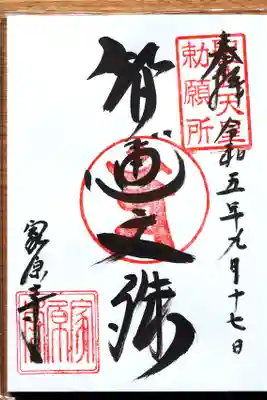 聖武天皇
勅願所
奉拝 令和五年九月十七日
智恵文殊
家原寺
家原寺